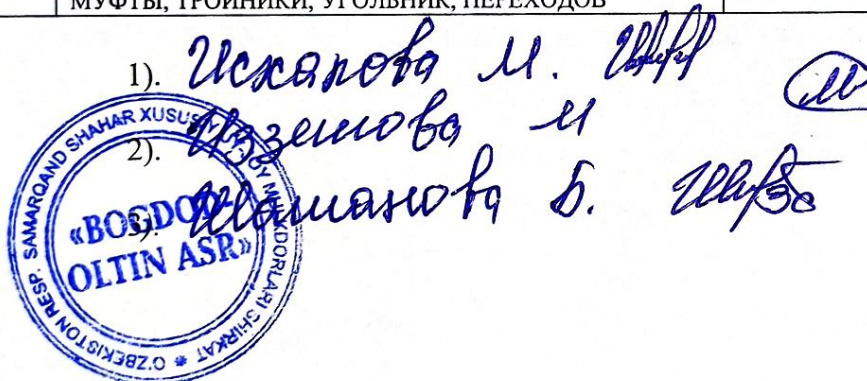 МУФТЫ, ТРОЙНИКИ, УГОЛЬНИК, ПЕРЕХОДОВ
1). Исхакова М.
2). М
3). Шоманова Б.
O'ZBEKISTON RESP. SAMARQAND SHAHAR MULKDORLARI SHIRKAT
«BOGDOD-
OLTIN ASR»